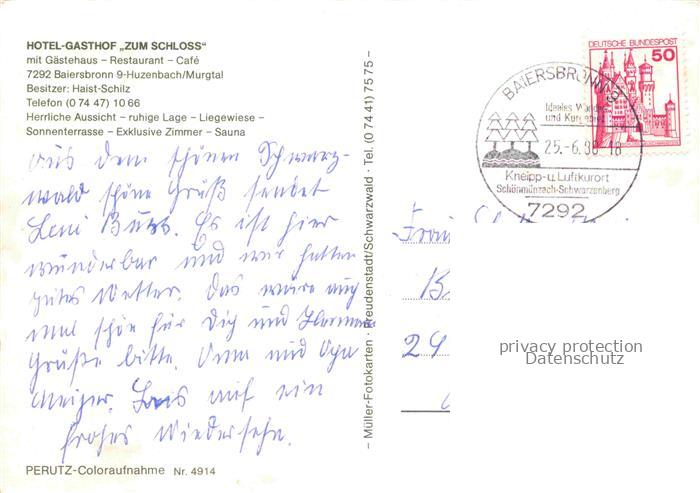 HOTEL-GASTHOF „ZUM SCHLOSS"
mit Gästehaus – Restaurant – Café
7292 Baiersbronn 9-Huzenbach/Murgtal
Besitzer: Haist-Schilz
Telefon (0 74 47) 10 66
Herrliche Aussicht – ruhige Lage – Liegewiese –
Sonnenterrasse – Exklusive Zimmer – Sauna
Aus dem schönen Schwarz-
wald schöne Grüße sendet
Leni
Es ist hier
wunderbar und wir hatten
gutes Wetter. Das wäre auch
mal schön für Dich und
Grüße bitte Oma und Opa
auf ein
frohes Wiedersehn.
PERUTZ-Coloraufnahme Nr. 4914
– Müller-Fotokarten · Freudenstadt/Schwarzwald · Tel. (0 74 41) 75 75 –
DEUTSCHE BUNDESPOST
50
BAIERSBRONN
Ideales Wander-
und Kurgebiet
25.-6. 18
Kneipp-u. Luftkurort
Schönmünzach-Schwarzenberg
7292
Frau
privacy protection
Datenschutz